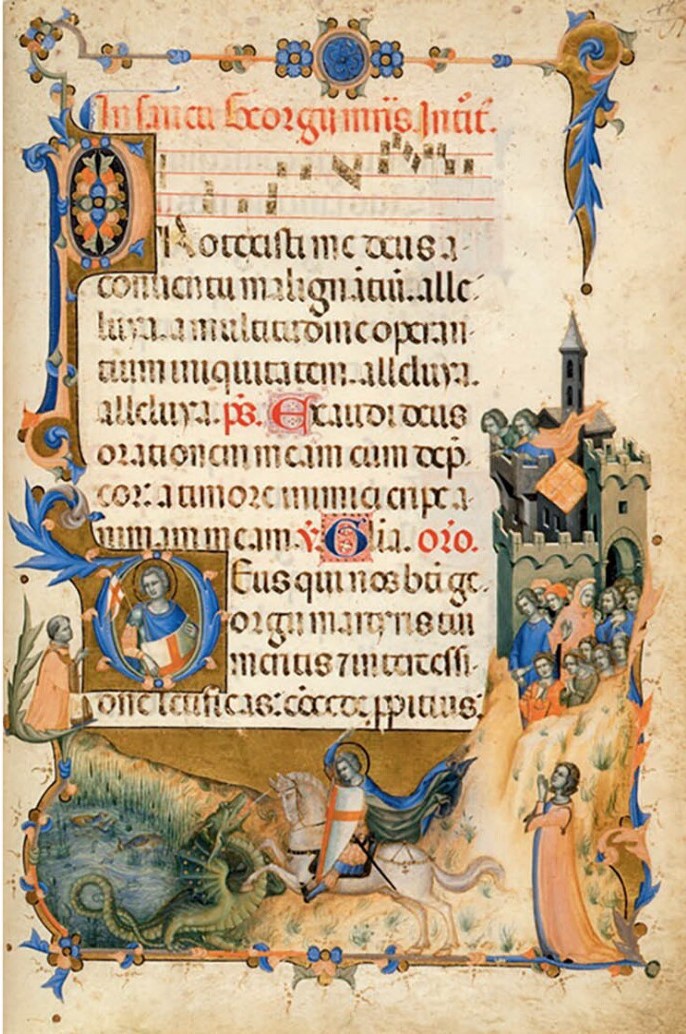 In sancti Georgii mr̄is. Intit̄.
Protexisti me deus a
conuentu malignātiū. alle
luya. a multitudine operan
tium iniquitatem. alleluya.
alleluya. ps. Exaudi deus
orationem meam cum dep̄
cor: a timore inimici eripe a
nimam meam. V̄ Gl̄a. or̄o.
Deus qui nos bt̄i ge
orgii martyris tui
meritis ⁊ intercessi
one letificas: cōcede ꝓpitius: